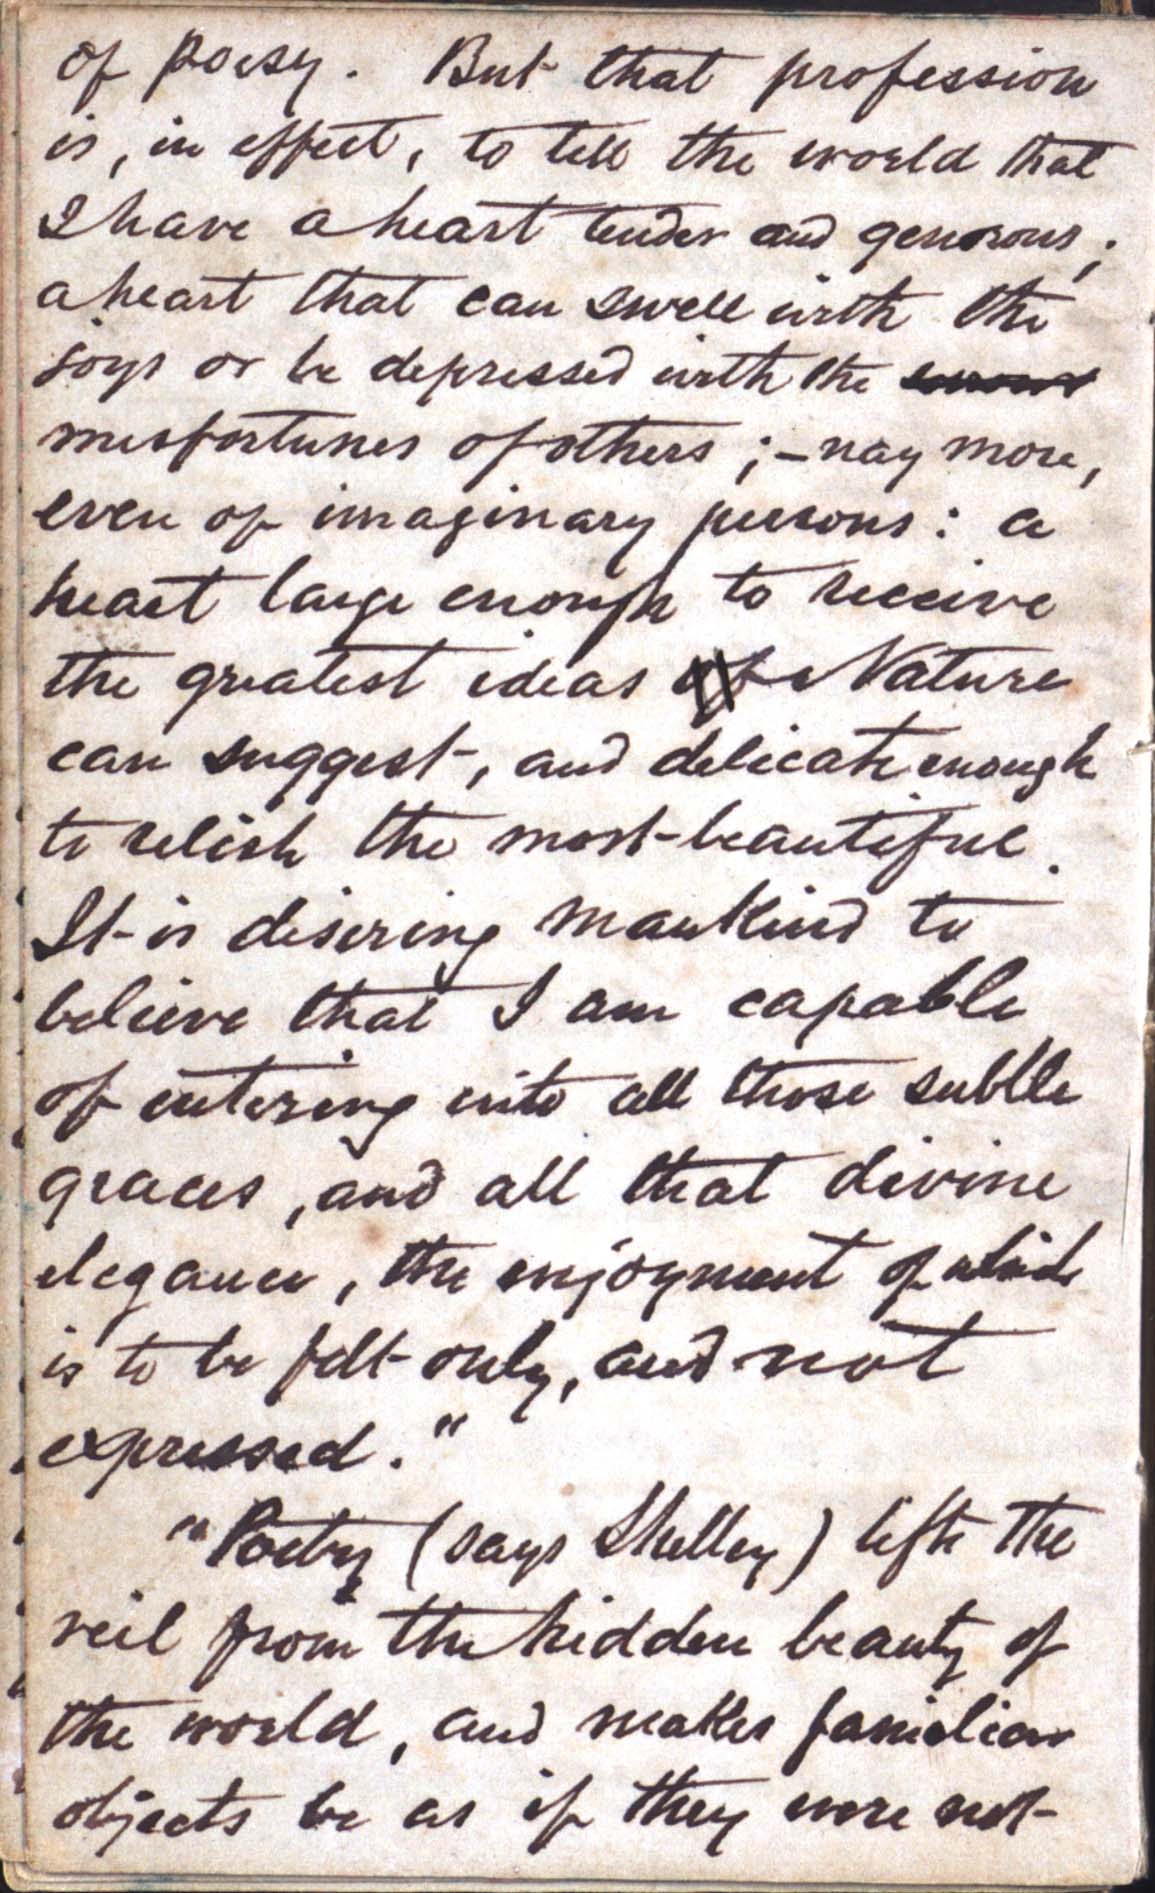 of poesy. But that profession
is, in effect, to tell the world that
I have a heart tender and generous;
a heart that can swell with the
joys or be depressed with the
misfortunes of others; – nay more,
even of imaginary persons: a
heart large enough to receive
the greatest ideas Nature
can suggest, and delicate enough
to relish the most beautiful.
It is desiring mankind to
believe that I am capable
of entering into all those subtle
graces, and all that divine
elegance, the enjoyment of which
is to be felt only, and not
expressed."
"Poetry (says Shelley) lifts the
veil from the hidden beauty of
the world, and makes familiar
objects be as if they were not